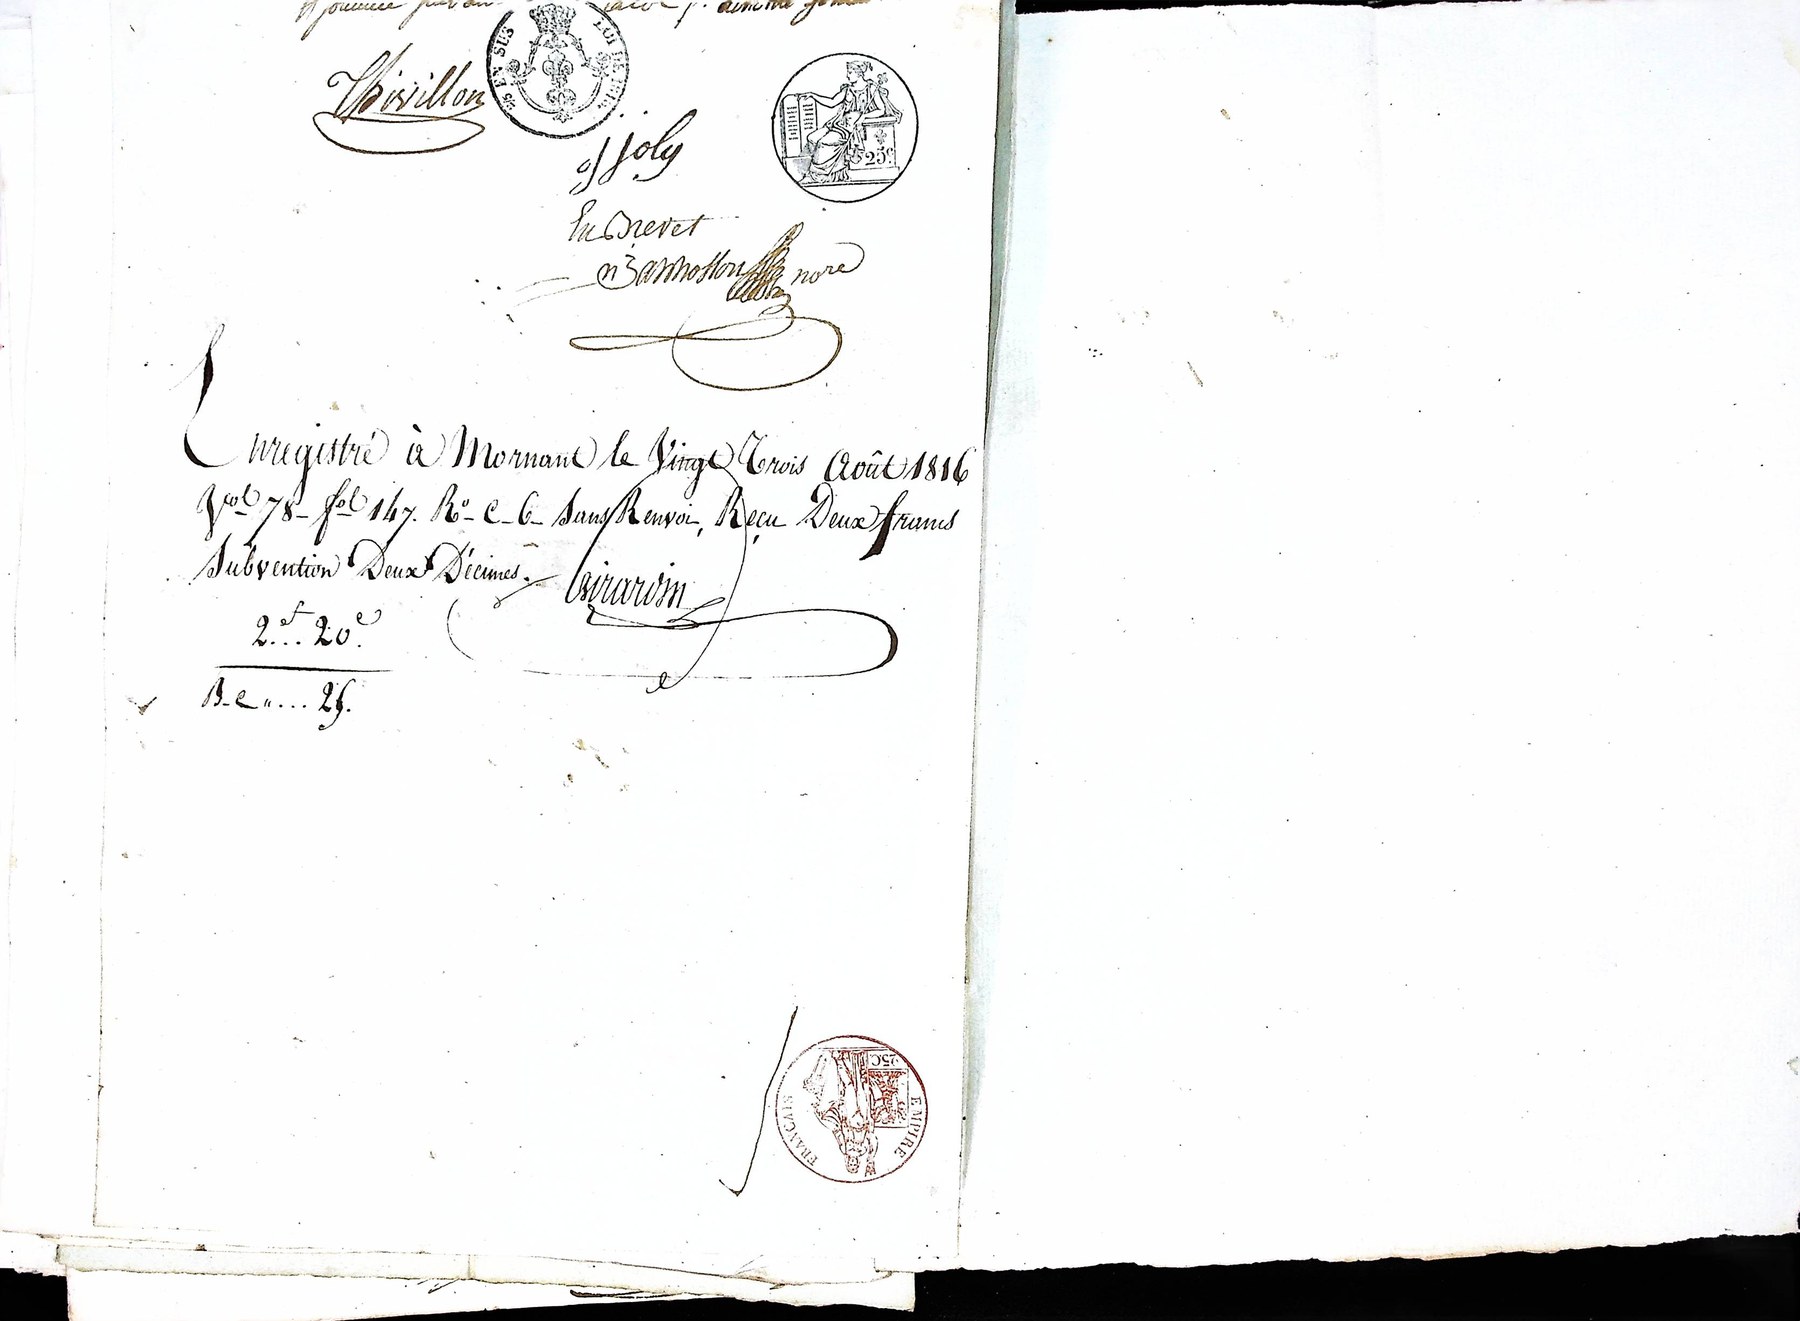 EN SUS
Thivillon
25c
j joly
En Brevet
nore
Enregistré à Mornant le Vingt Trois Août 1816
Vol 78 - fol 147. Ro - C - 6 - Sans Renvoi, Reçu Deux francs
Subvention Deux Décimes. Girardin
2f... 20c.
B-c".... 25.
EMPIRE
FRANCAIS
25C